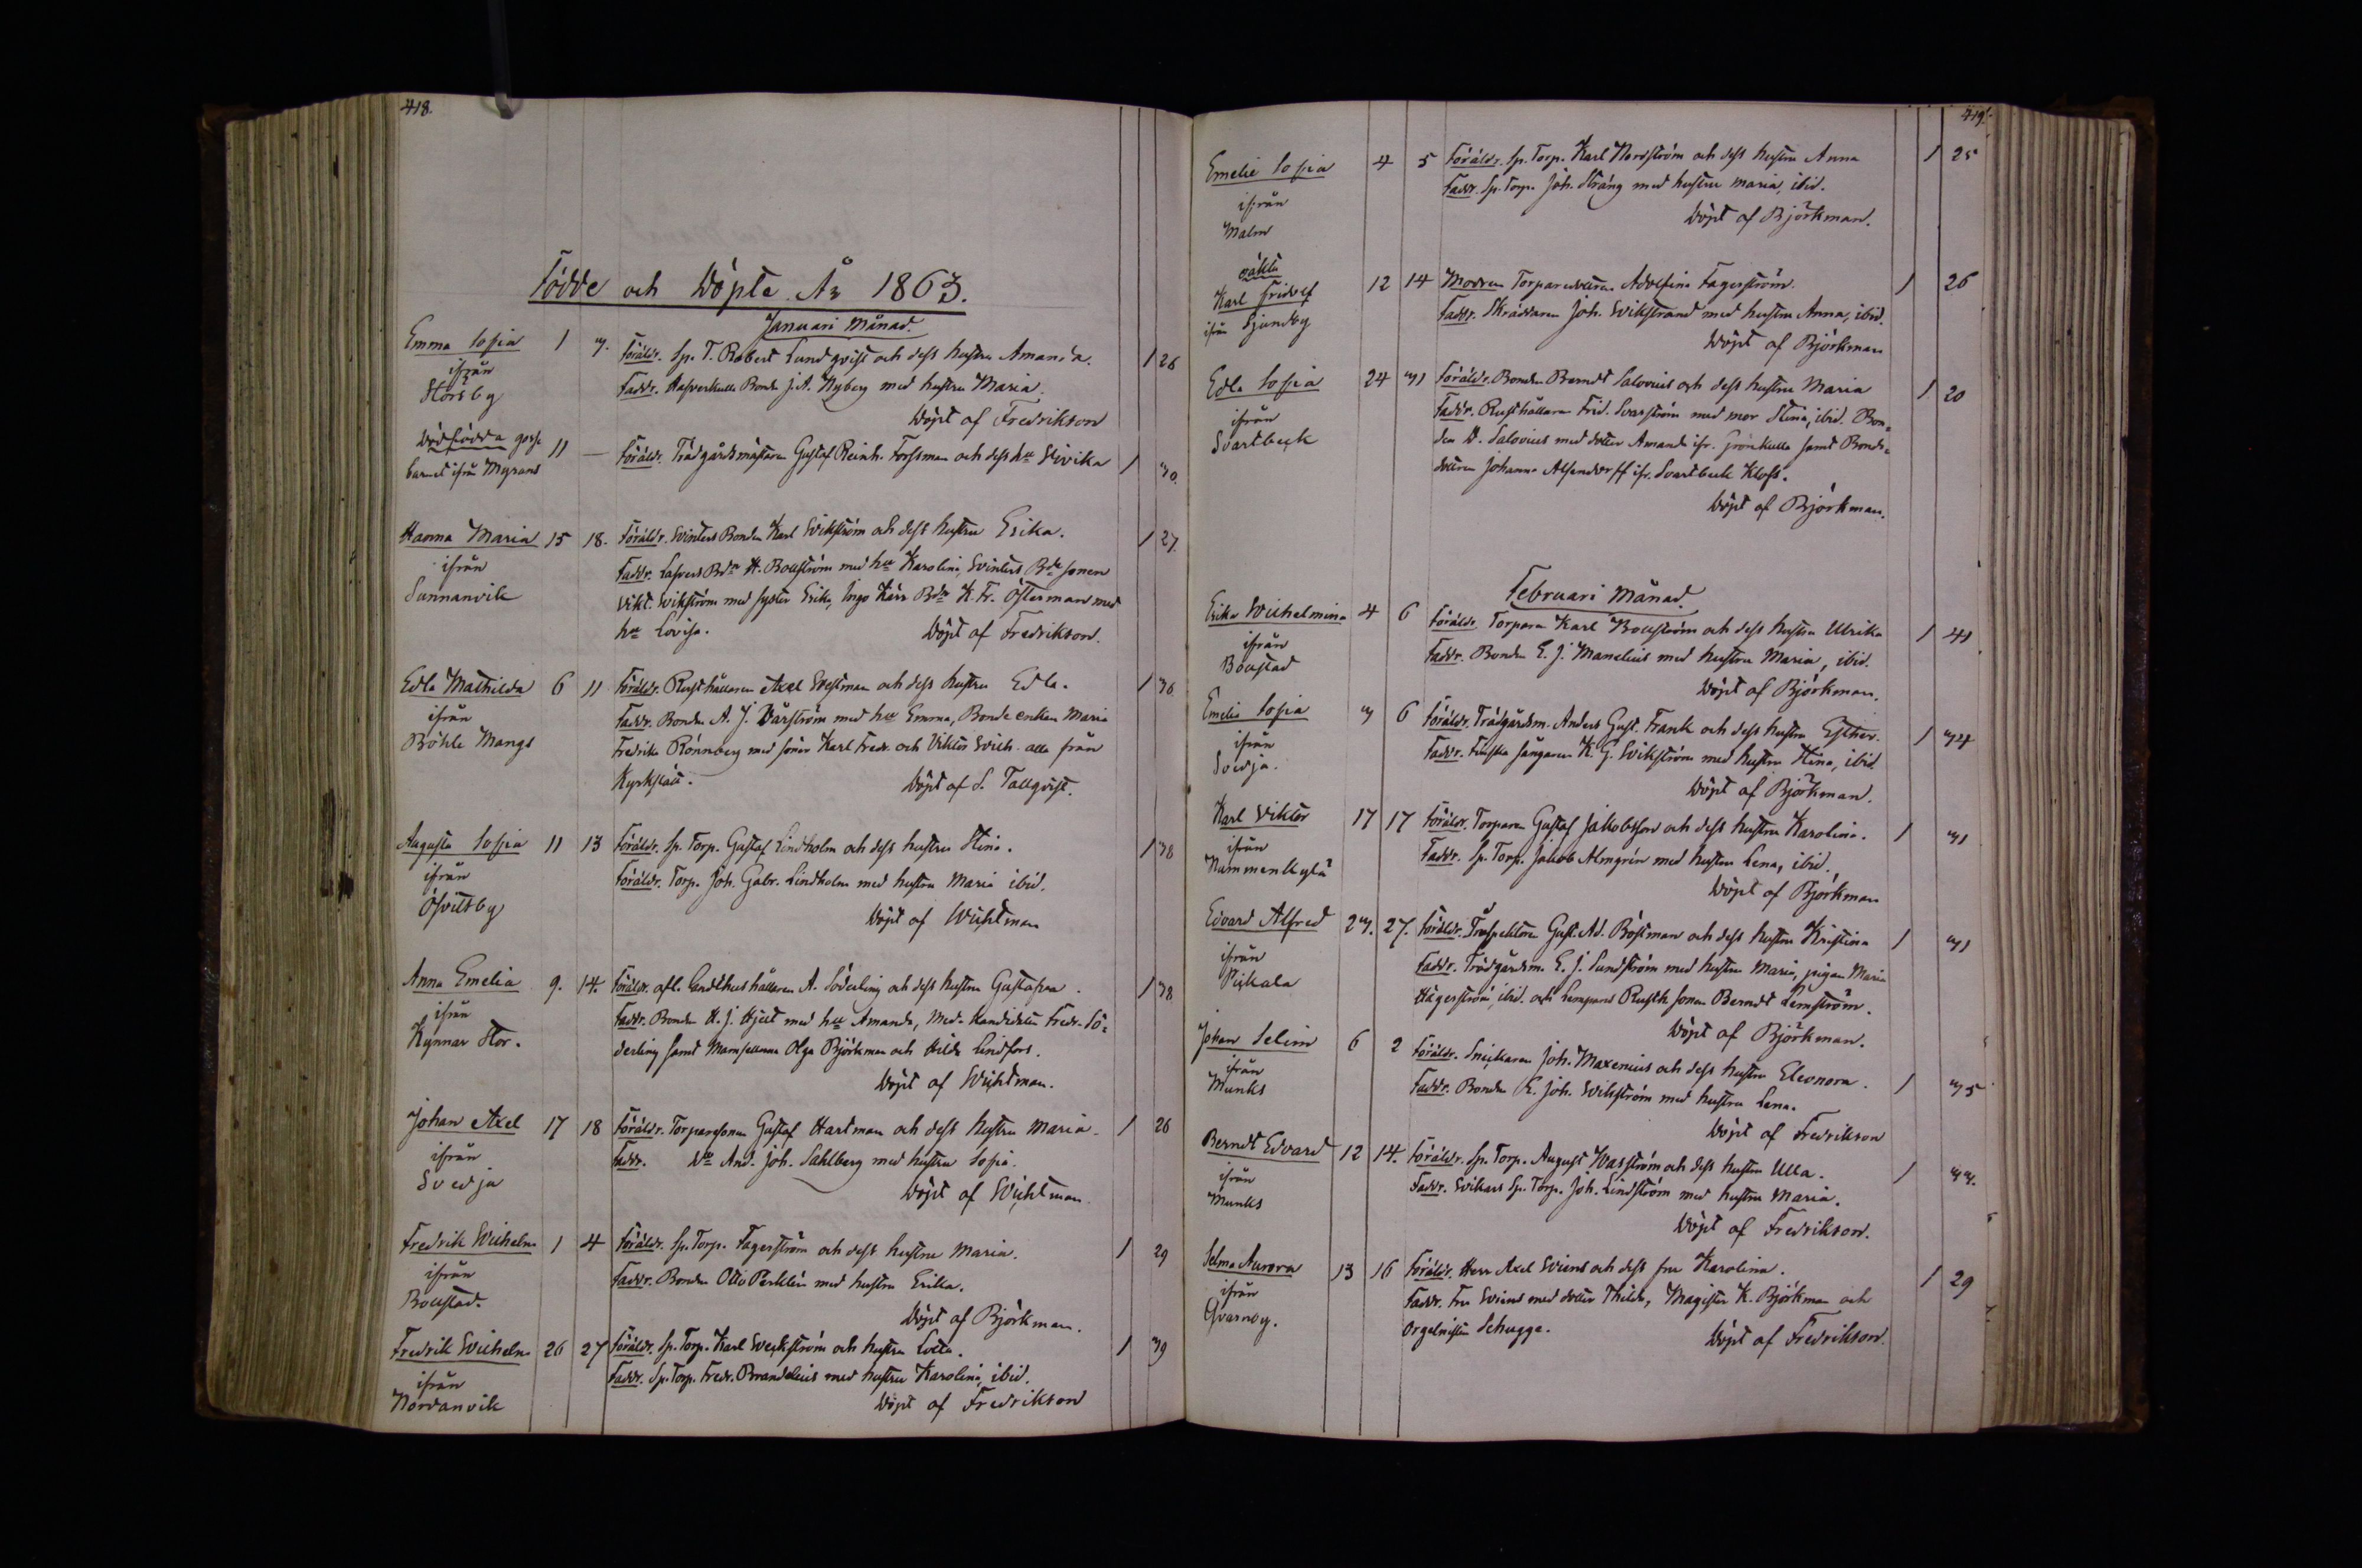 418.
Födde och Döpte År 1863.
Januari Månad.
Emma Sofia 1 3. Föräldr. Sp. T. Robert Lundqvist och dess hustru Amanda. 1 26
ifrån
Störsby
Faddr. Bonde J. A. Nyberg med hustru Maria.
Döpt af Fredrikson
Dödfödda gosse
barnet ifrån Myrans 11 — Föräldr. Trädgårdsmästaren Gustaf Reinh. Forssman och dess hu Vivika 1 30.
Hanna Maria 15 18. Föräldr. Winters Bonden Karl Wikström och dess hustru Erika. 1 27.
ifrån
Sunnanvik
Faddr. Bdn H. Bollström med hu Karolina, Winters Bde sonen
Vikt. Wikström med syster Erika, Ingo Kärr Bdn K. Fr. Österman med
hu Lovisa. Döpt af Fredrikson.
Edla Mathilda 6 11 Föräldr. Rusthållaren Axel Westman och dess hustru Edla. 1 36
ifrån
Böhle Mangs
Faddr. Bonden A. J. Wårström med hu Emma, Bonde enkan Maria
Fredrika Rönnberg med söner Karl Fredr. och Viktor Wilh. alla från
Kyrkslätt. Döpt af S. Tallqvist.
Augusta Sofia 11 13 Föräldr. Sp. Torp. Gustaf Lindholm och dess hustru Stina. 1 38
ifrån
Ösvitsby
Föräldr. Torp. Joh. Gabr. Lindholm med hustru Maria ibid.
Döpt af Wichtman
Anna Emelia 9. 14. Föräldr. afl. Landthushållaren A. Söderling och dess hustru Gustafva. 1 38
ifrån
Kynnar Stor.
Faddr. Bonden H. J. Hjelt med hu Amanda, Med. Kandidaten Fredr. Sö-
derling samt Mamsellerna Olga Björkman och Hilda Lindfors.
Döpt af Wichtman.
Johan Axel 17 18 Föräldr. Torparesonen Gustaf Hartman och dess hustru Maria. 1 26
ifrån
Svedja
Faddr. Do And. Joh. Sahlberg med hustru Sofia.
Döpt af Wichtman
Fredrik Wilhelm 1 4 Föräldr. Sp. Torp. Fagerström och dess hustru Maria. 1 29
ifrån
Bollstad.
Faddr. Bonden Otto Perklén med hustru Erika.
Döpt af Björkman.
Fredrik Wilhelm 26 27 Föräldr. Sp. Torp. Karl Weckström och hustru Lotta. 1 39
ifrån
Nordanvik
Faddr. Sp. Torp. Fredr. Brandelius med hustru Karolina, ibid.
Döpt af Fredrikson
419.
Emelie Sofia 4 5 Föräldr. Sp. Torp. Karl Nordström och dess hustru Anna 1 25
ifrån
Malm
Faddr. Sp. Torp. Joh. Sträng med hustru Maria, ibid.
Döpt af Björkman.
oäkta
Karl Fridolf 12 14 Modren Torparedottren Adolfina Fagerström. 1 26
ifrån Sjundby
Faddr. Skräddaren Joh. Wikstrand med hustru Anna, ibid.
Döpt af Björkman
Edla Sofia 24 31 Föräldr. Bonden Berndt Salovius och dess hustru Maria 1 20
ifrån
Svartbeck
Faddr. Rusthållaren Frid. Svarström med mor Stina, ibid. Bon-
den H. Salovius med dotter Amanda ifr. Grönkulla samt Bonde-
dottren Johanna Alfendorff ifr. Svartbeck Klofs.
Döpt af Björkman.
Februari Månad.
Erika Wilhelmina 4 6 Föräldr. Torparen Karl Bollström och dess hustru Ulrika 1 41
ifrån
Bollstad
Faddr. Bonden E. J. Manelius med hustru Maria, ibid.
Döpt af Björkman.
Emelia Sofia 3 6 Föräldr. Trädgårdsm. Anders Gust. Frank och dess hustru Esther. 1 34
ifrån
Svedja.
Faddr. K. G. Wikström med hustru Stina, ibid.
Döpt af Björkman.
Karl Viktor 17 17 Föräldr. Torparen Gustaf Jakobsson och dess hustru Karolina. 1 31
ifrån
Nummenkylä
Faddr. Sp. Torp. Jakob Almgrén med hustru Lena, ibid.
Döpt af Björkman
Edvard Alfred 23. 27. Föräldr. Inspektoren Gust. Ad. Böstman och dess hustru Kristina 1 31
ifrån
Pickala
Faddr. Trädgårdsm. E. J. Sundström med hustru Maria, pigan Maria
Hägerström, ibid. och Lempans Rusth sonen Berndt Lemström.
Döpt af Björkman.
Johan Selim 6 2 Föräldr. Snickaren Joh. Maxenius och dess hustru Eleonora. 1 35
ifrån
Munks
Faddr. Bonden K. Joh. Wikström med hustru Lena.
Döpt af Fredrikson
Berndt Edvard 12 14. Föräldr. Sp. Torp. August Wasström och dess hustru Ulla. 1 33.
ifrån
Munks
Faddr. Wikars Sp. Torp. Joh. Lindström med hustru Maria.
Döpt af Fredrikson.
Selma Aurora 13 16 Föräldr. Herr Axel Wiens och dess fru Karolina. 1 29
ifrån
Qvarnby.
Faddr. Fru Wiens med dotter Thilda, Magister K. Björkman och
Orgelnisten Schugge. Döpt af Fredrikson.